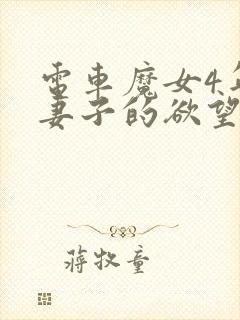 電車魔女4
妻子的欲望
蔣牧童